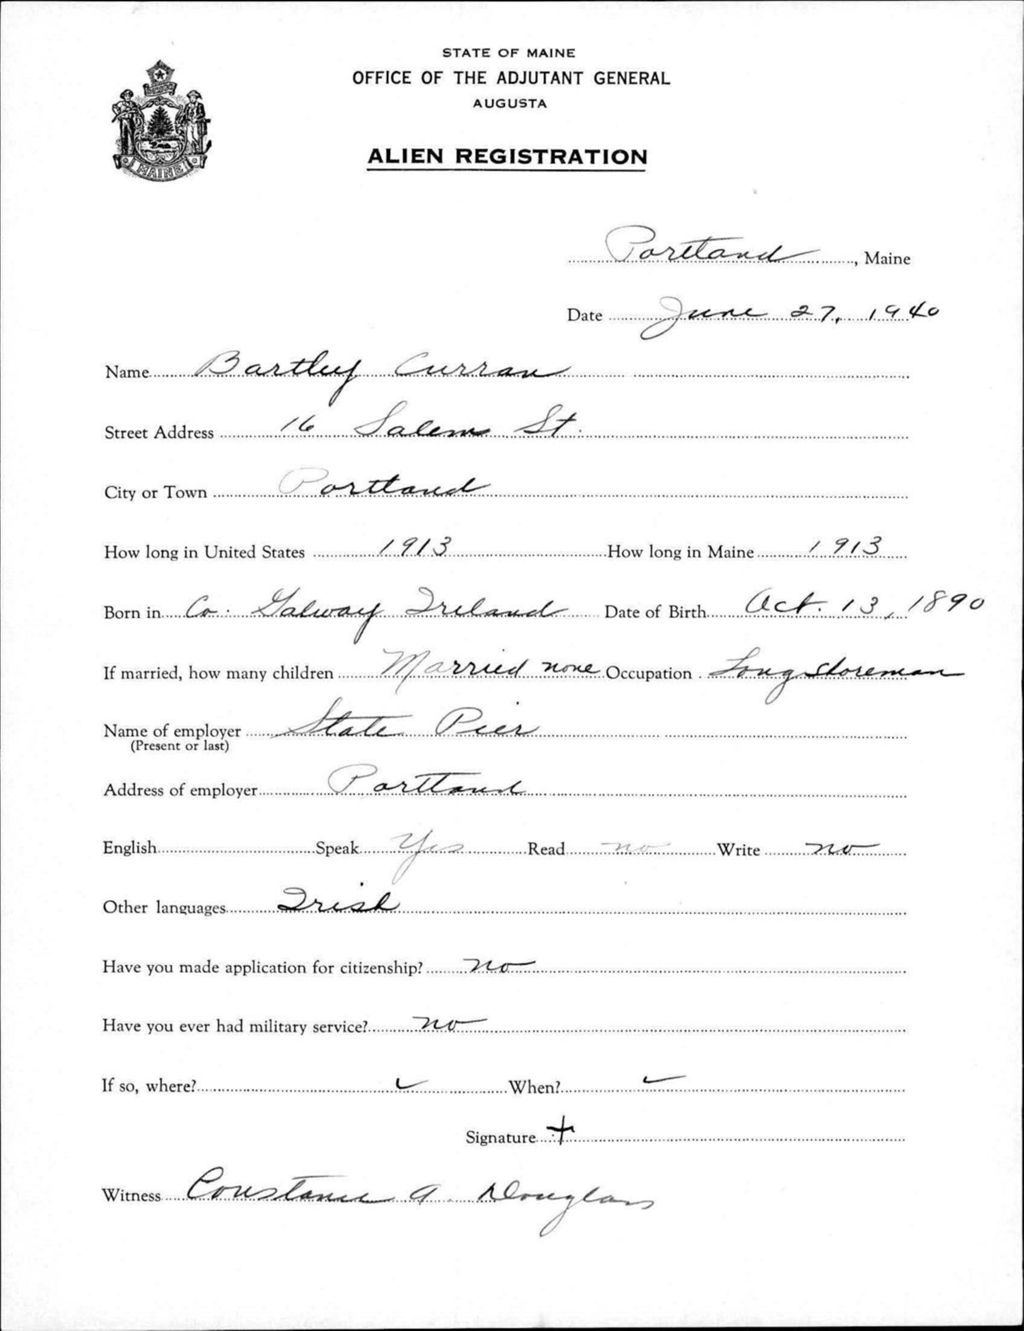 STATE OF MAINE
OFFICE OF THE ADJUTANT GENERAL
AUGUSTA
ALIEN REGISTRATION
MAINE
Portland, Maine
Date June 27, 1940
Name Bartley Curran
Street Address 16 Salem St.
City or Town Portland
How long in United States 1913 How long in Maine 1913
Born in Co. Galway Ireland Date of Birth Oct. 13, 1890
If married, how many children Married none Occupation Longshoreman
Name of employer State Pier
(Present or last)
Address of employer Portland
English Speak Yes Read no Write no
Other languages Irish
Have you made application for citizenship? no
Have you ever had military service? no
If so, where? ✓ When? ✓
Signature +
Witness Constance A. Douglass